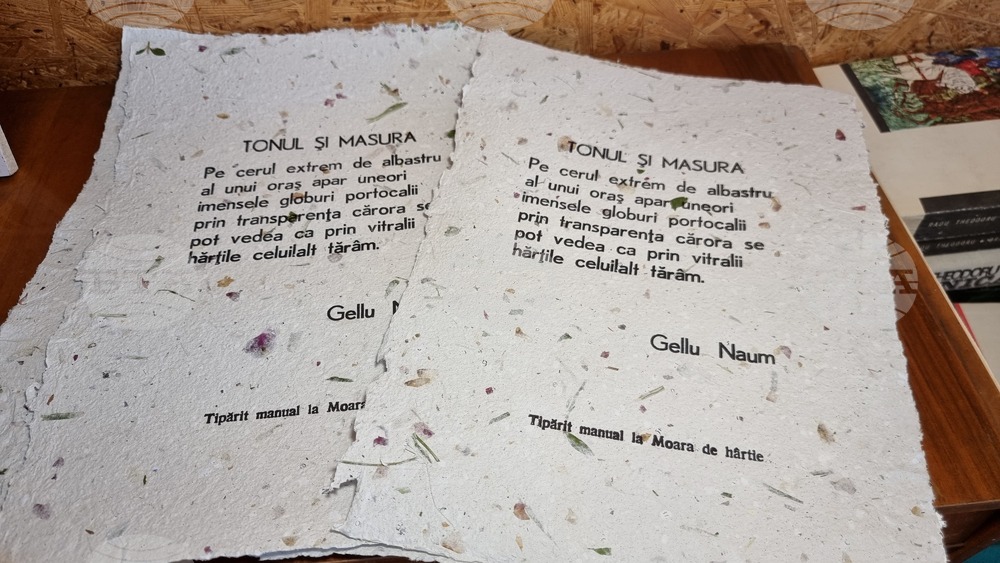 TONUL ȘI MASURA
Pe cerul extrem de albastru
al unui oraș apar uneori
imensele globuri portocalii
prin transparența cărora se
pot vedea ca prin vitralii
hărțile celuilalt tărâm.
Gellu
Tipărit manual la Moara
TONUL ȘI MASURA
Pe cerul extrem de albastru
al unui oraș apar uneori
imensele globuri portocalii
prin transparența cărora se
pot vedea ca prin vitralii
hărțile celuilalt tărâm.
Gellu Naum
Tipărit manual la Moara de hârtie